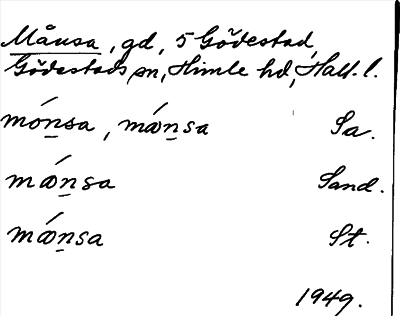 Månsa, gd, 5 Gödestad,
Gödestads sn, Himle hd, Hall. l.
mó̱nsa, mǽnsa Sa.
mǽnsa Sand.
mǽnsa St.
1949.